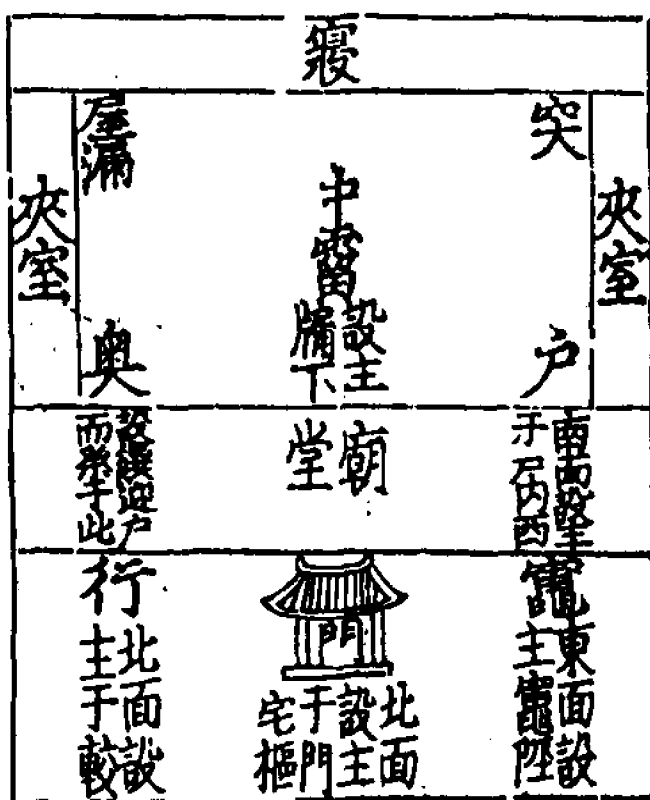 寢
突
夾室
户
中霤
設主
牖下
屋漏
夾室
奥
南面設主
于户内西
廟
堂
設饌迎户
而祭于此
竈
東面設
主竈陘
門
北面
設主
于門
宅樞
行
北面設
主于較